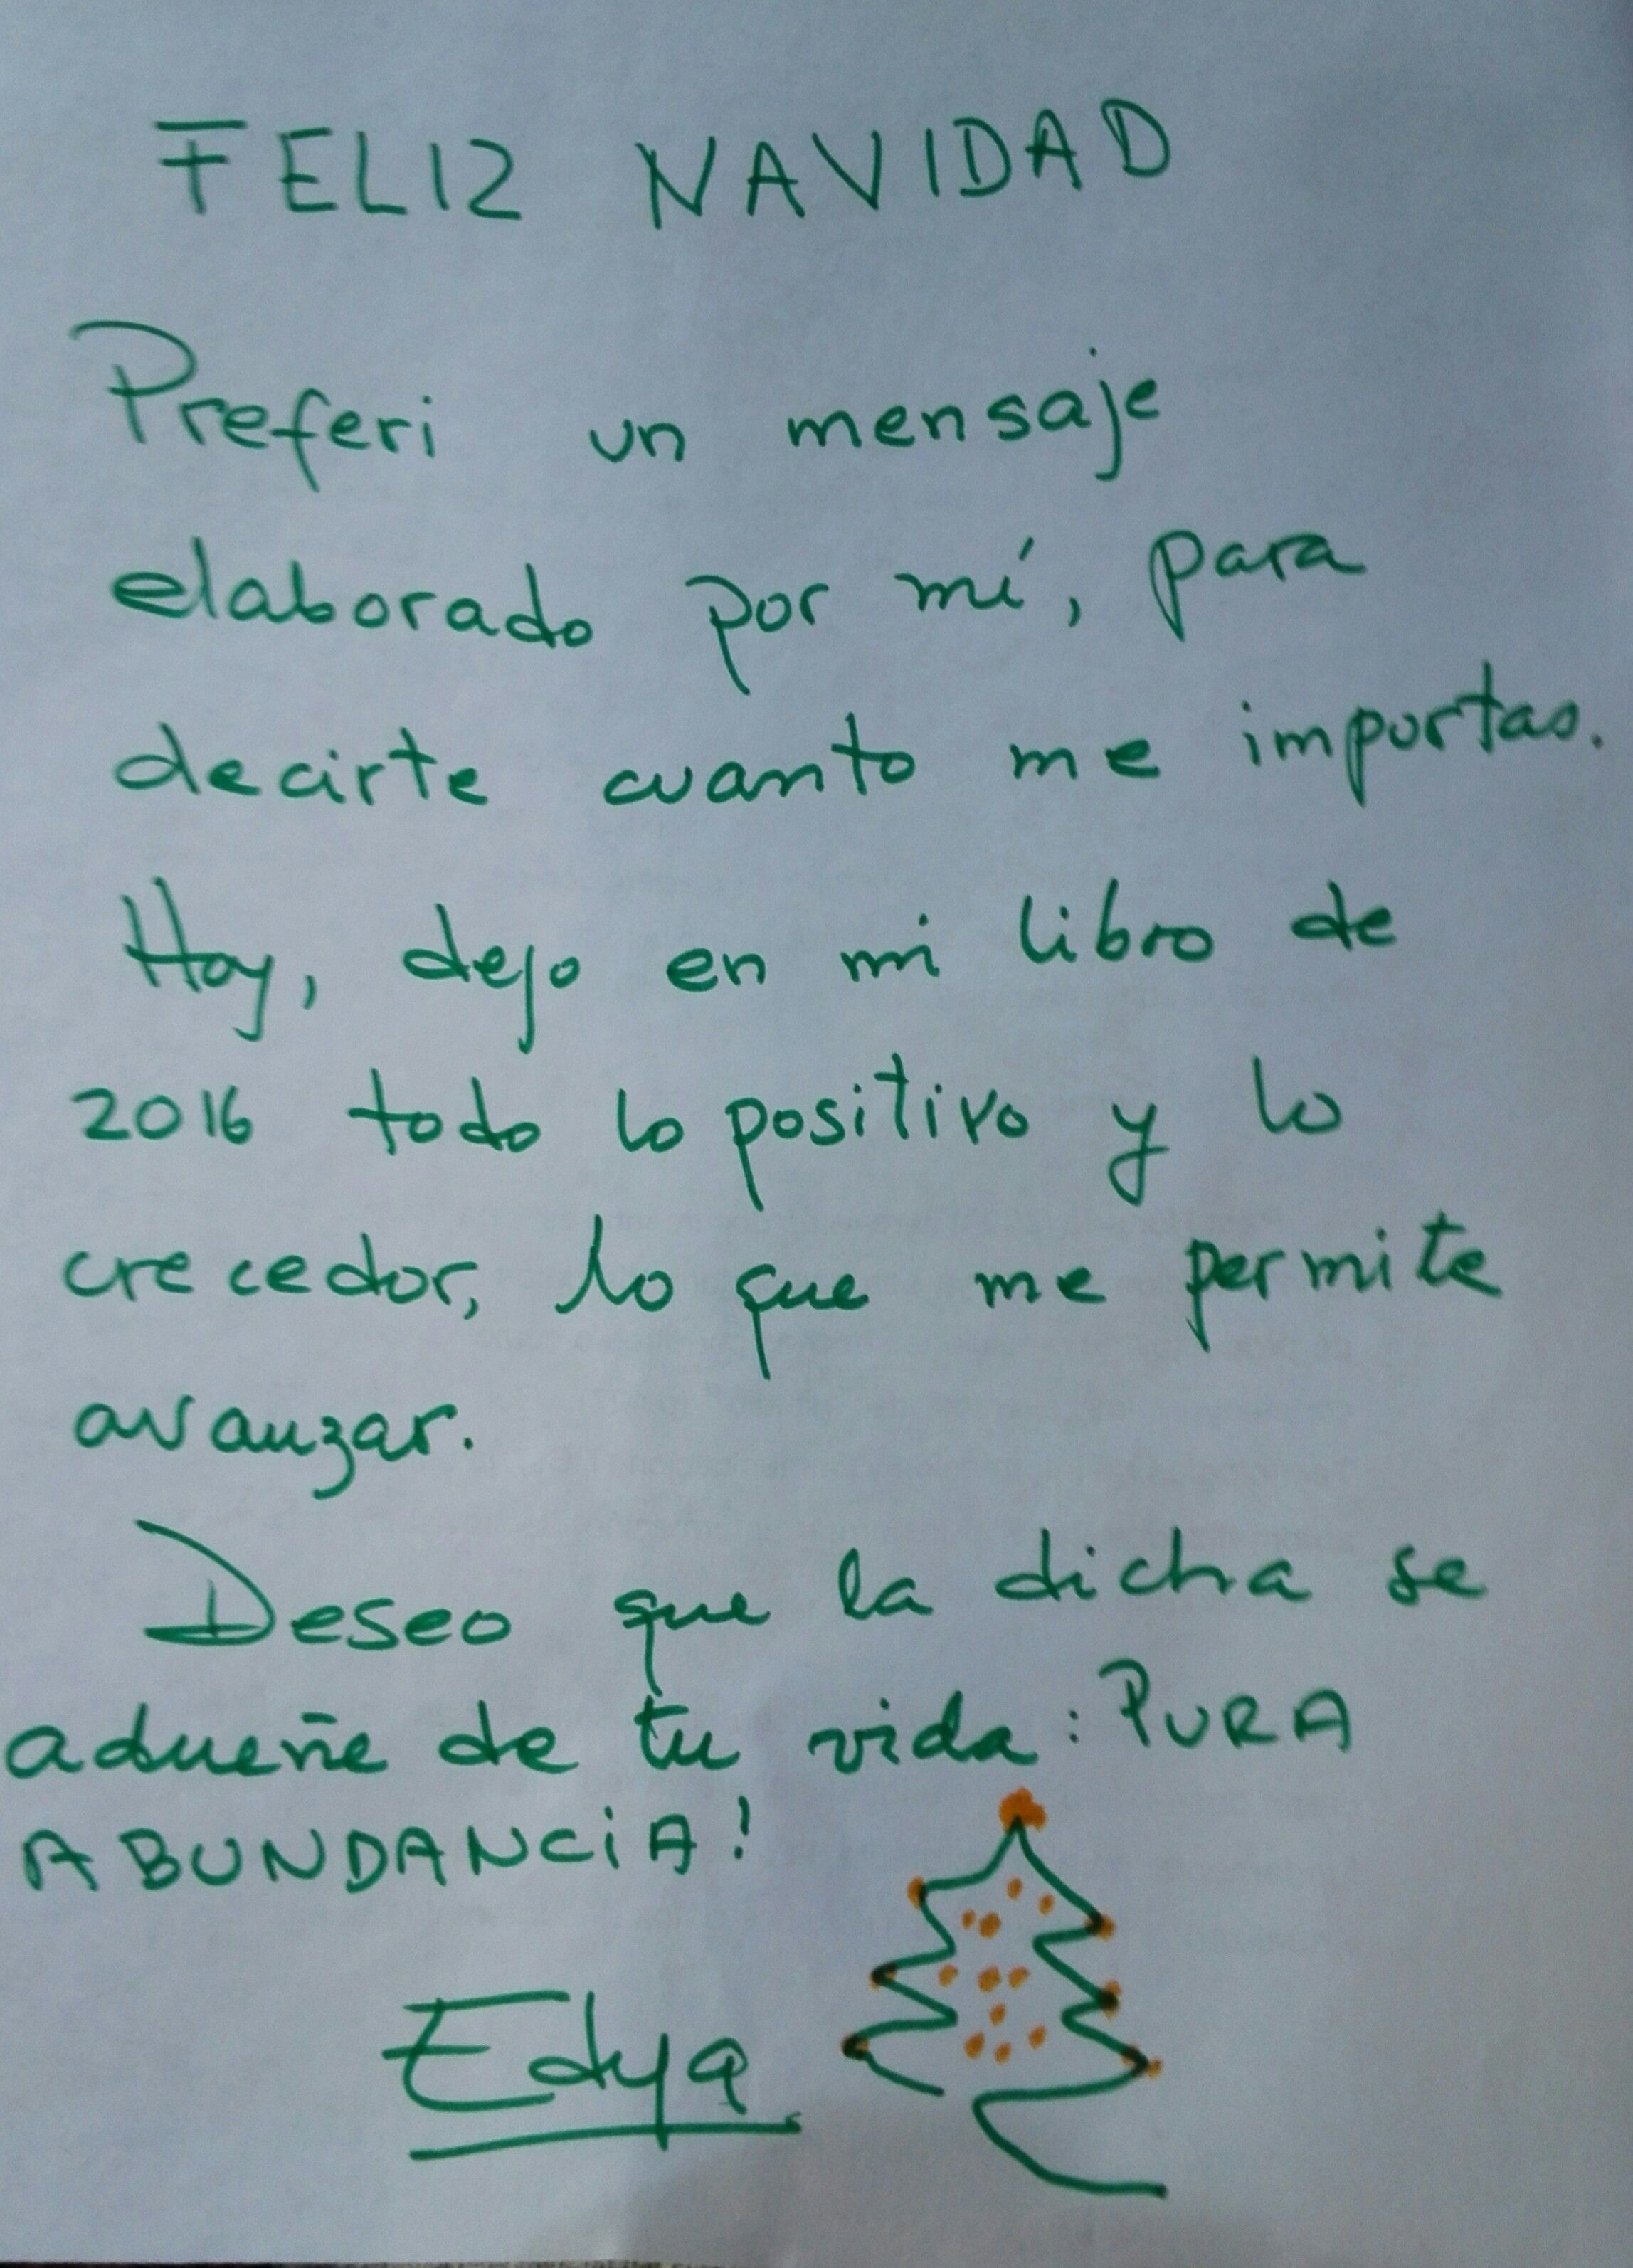 FELIZ NAVIDAD
Preferi un mensaje
elaborado por mí, para
decirte cuanto me importas.
Hoy, dejo en mi libro de
2016 todo lo positivo y lo
crecedor, lo que me permite
avanzar.
Deseo que la dicha se
adueñe de tu vida: PURA
ABUNDANCIA!
Edya